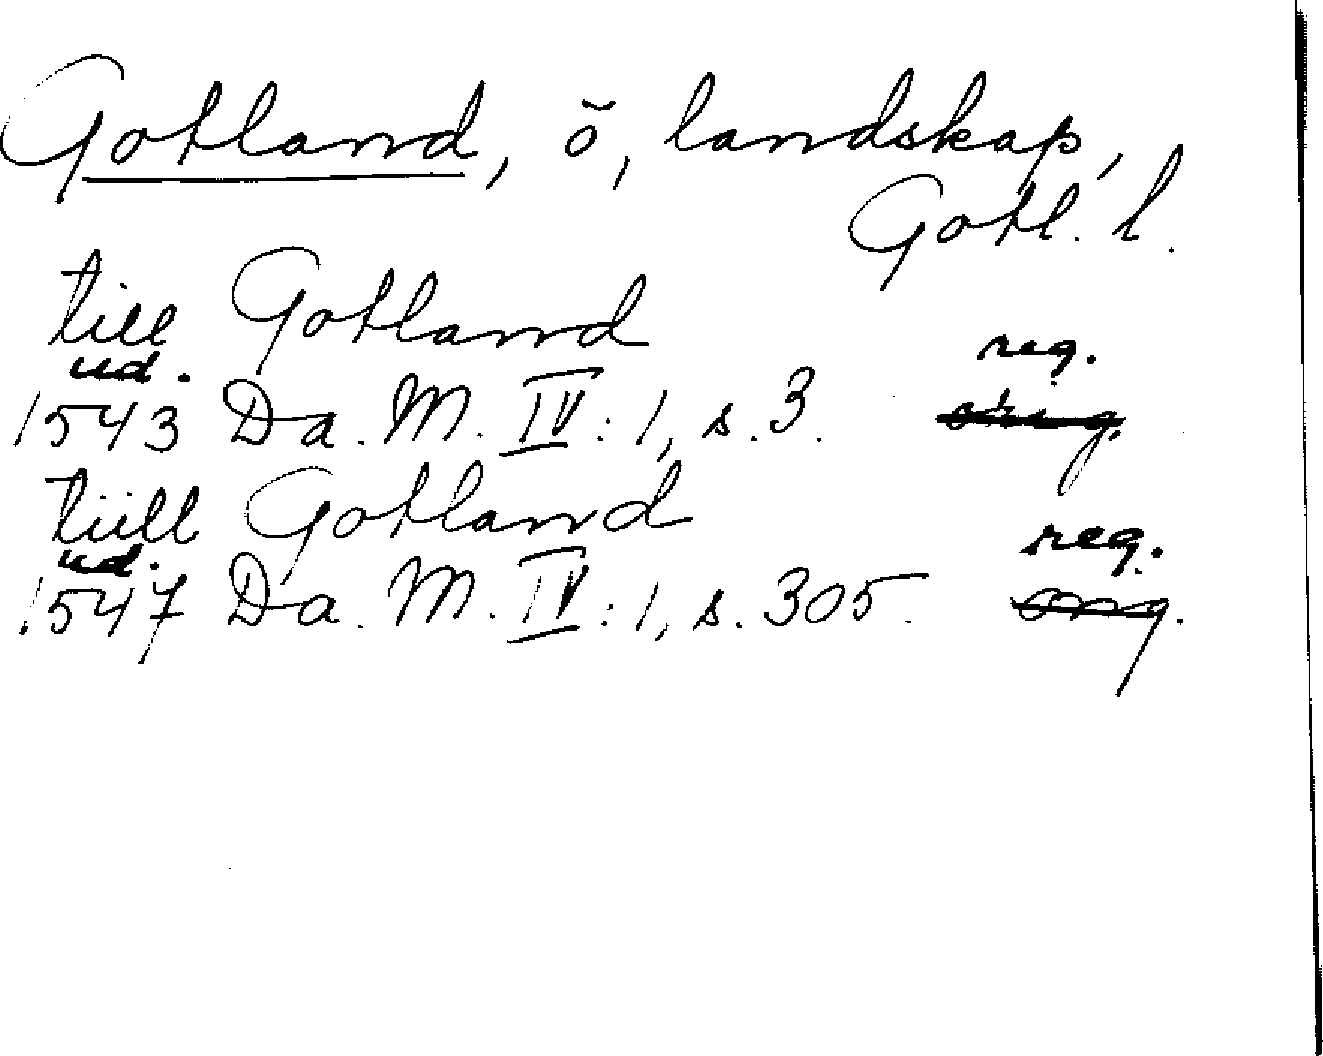 Gotland, ö, landskap,
Gotl. l.
till Gotland
ud. reg.
1543 Da. M. IV: 1, s. 3. orig.
tiill Gotland
ud. reg.
1547 Da. M. IV: 1, s. 305. orig.